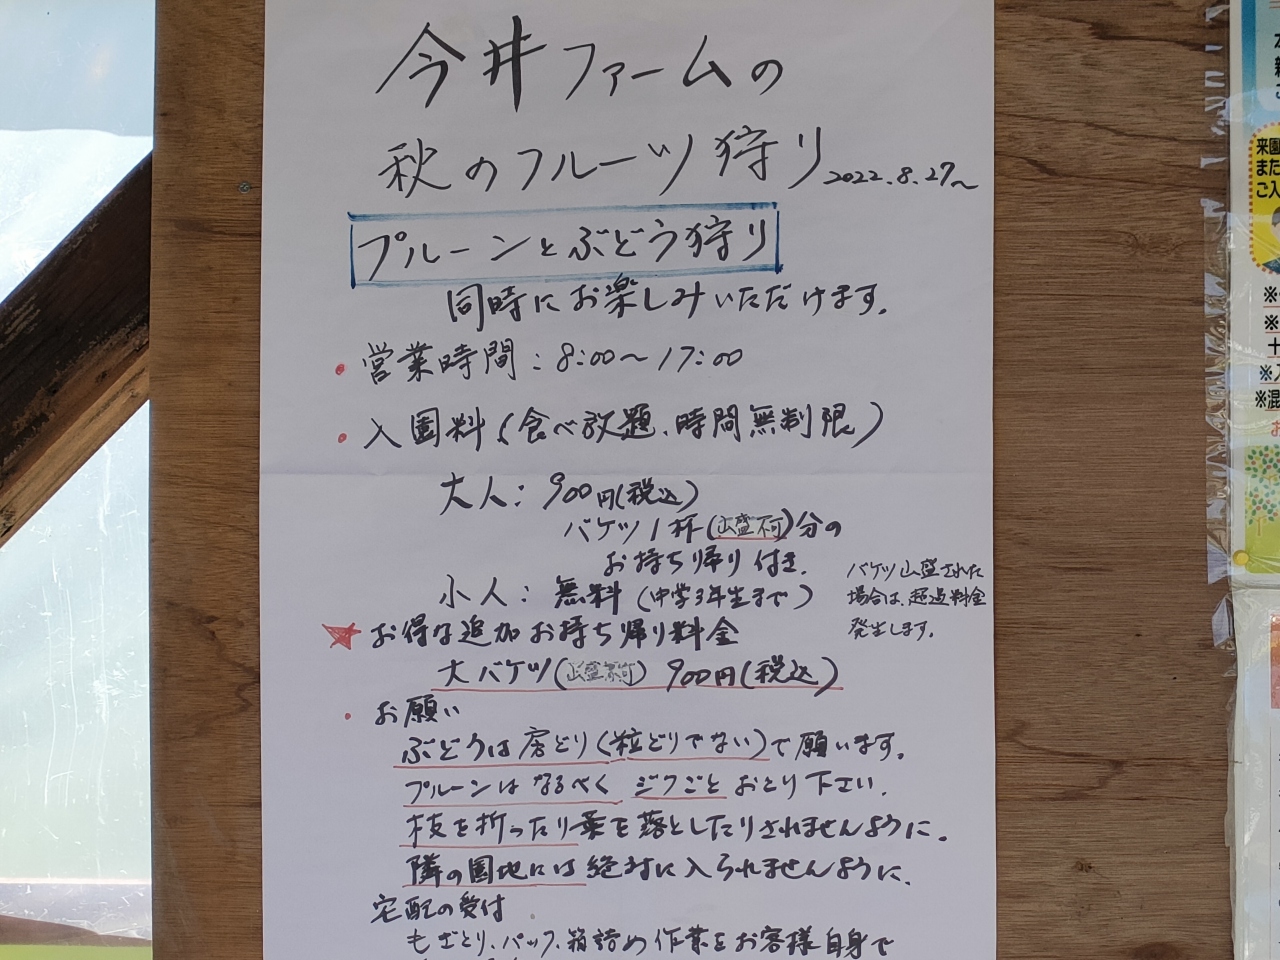 今井ファームの
秋のフルーツ狩り 2022.8.27〜
プルーンとぶどう狩り
同時にお楽しみいただけます。
・営業時間：8:00〜17:00
・入園料（食べ放題、時間無制限）
大人：900円（税込）
バケツ1杯（山盛不可）分の
お持ち帰り付き.
小人：無料（中学3年生まで）
バケツ山盛された
場合は、超過料金
発生します。
★お得な追加お持ち帰り料金
大バケツ（山盛不可）900円（税込）
・お願い
ぶどうは房どり（粒どりでない）で願います。
プルーンはなるべくジクごとおとり下さい.
枝を折ったり葉を落としたりされませんように.
隣の園地には絶対に入られませんように.
宅配の受付
もぎとり、パック、箱詰め作業をお客様自身で
来園
また
ご入
※
※
十
※入
※混